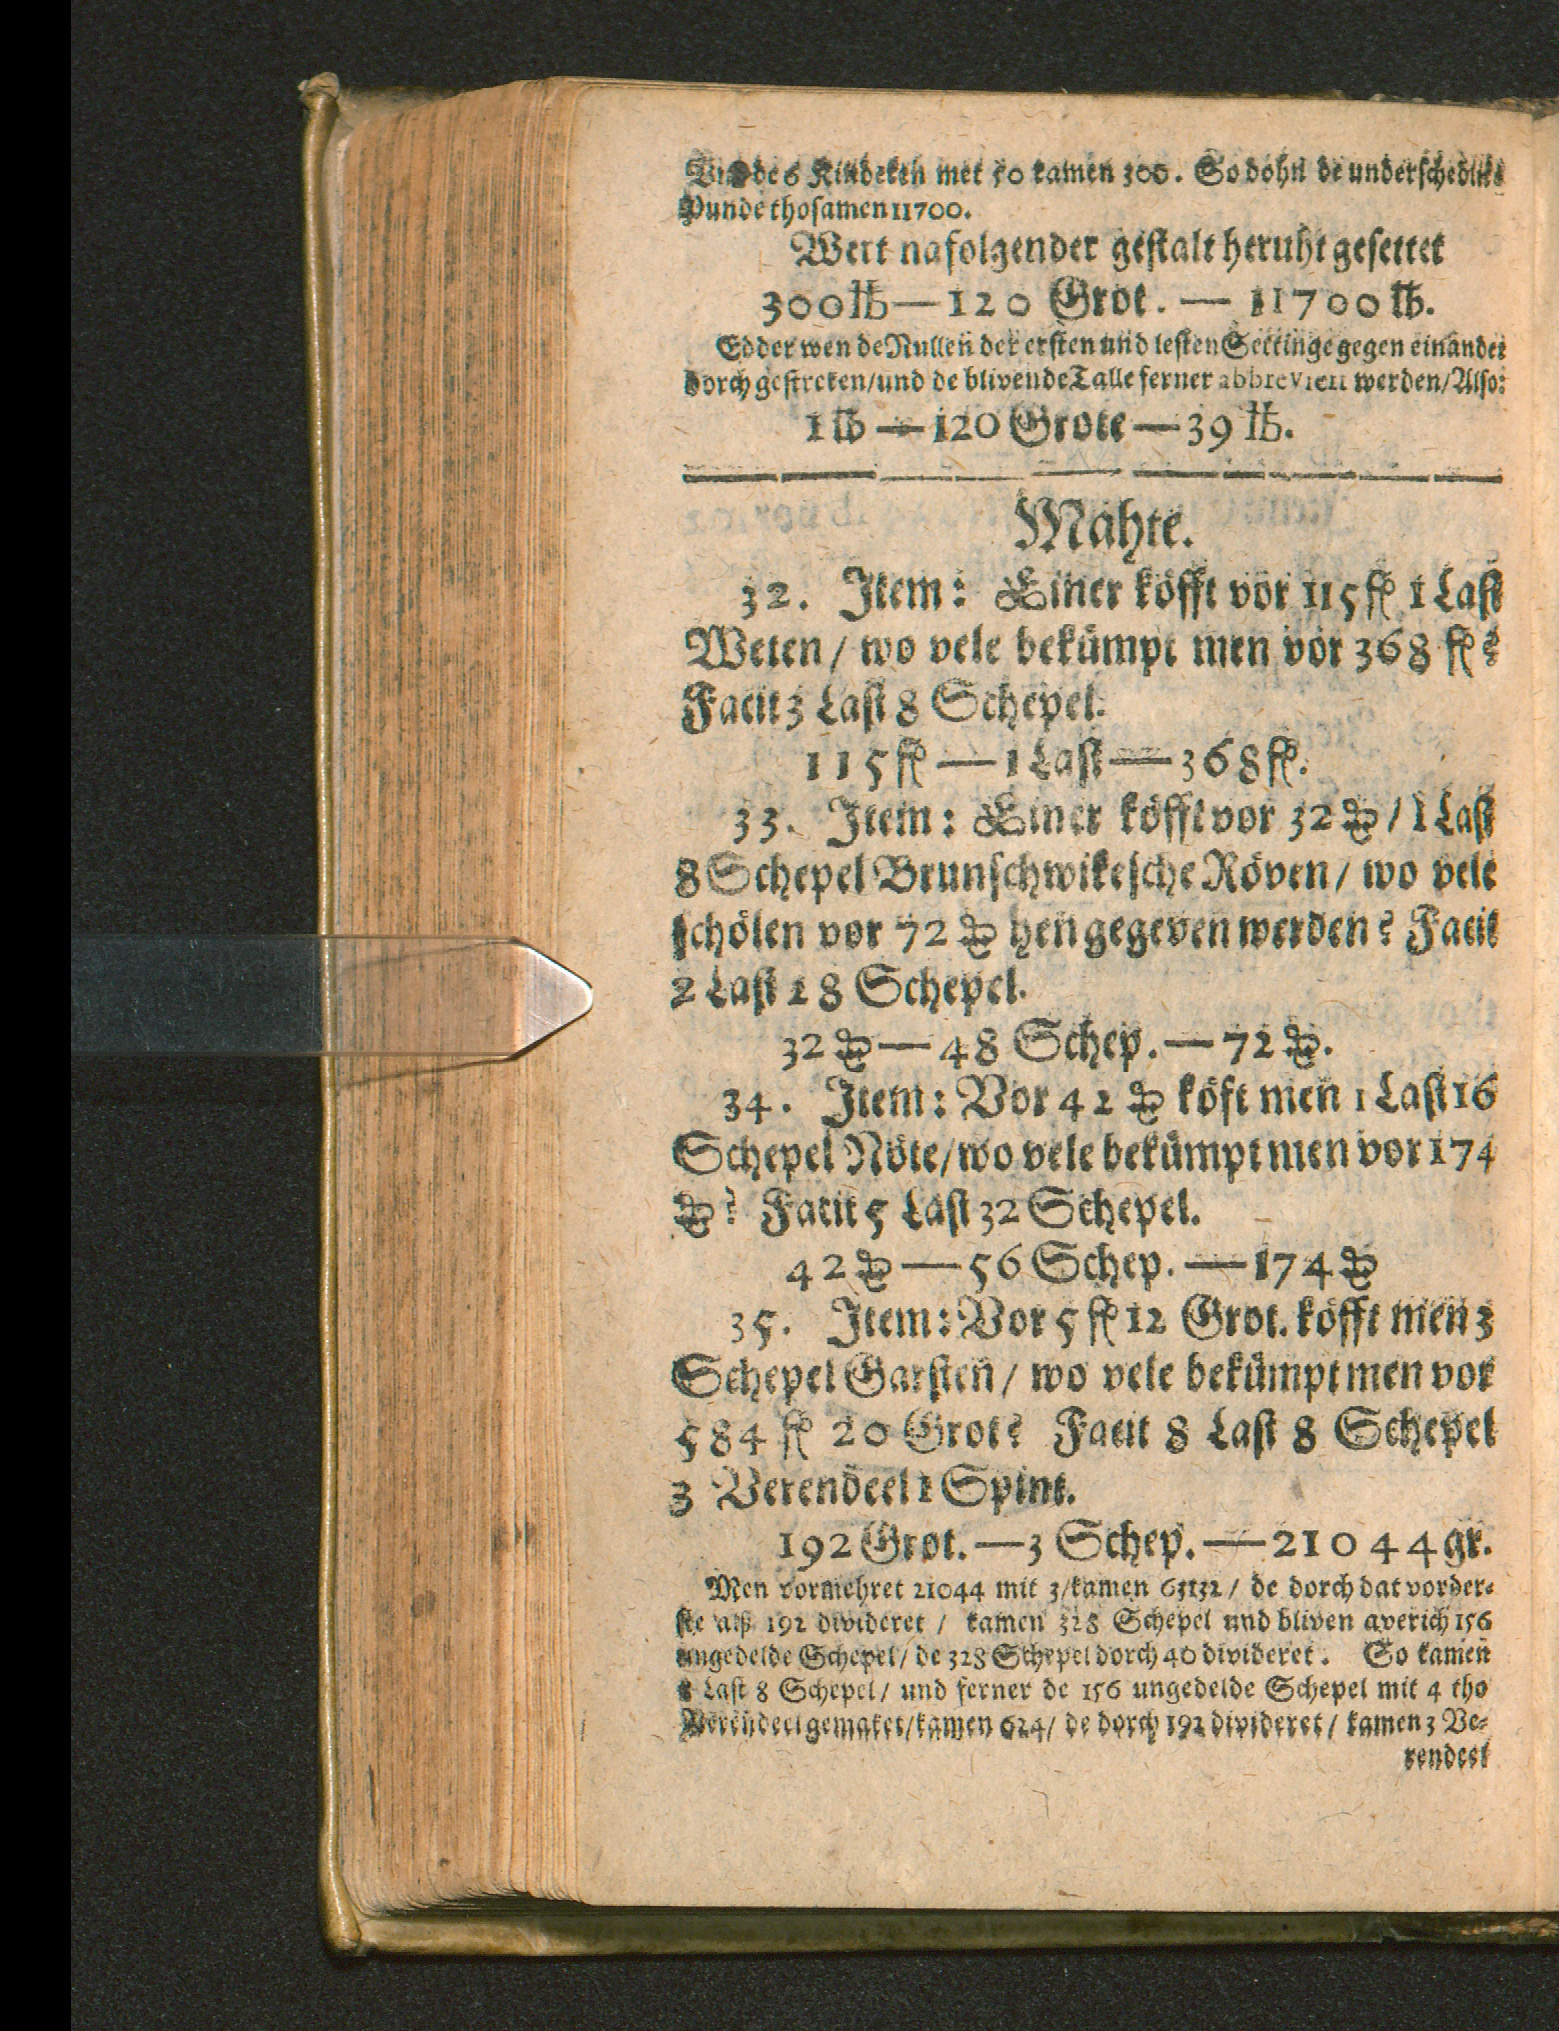 Und de 6 Kindeken met 50 kamen 300. So dohn de underschedlike
Punde thosamen 11700.
Wert nafolgender gestalt heruht gesettet
300 ℔ — 120 Grot. — 11700 ℔.
Edder wen de Nullen der ersten und lesten Settinge gegen einander
dorch gestreken/und de blivende Talle ferner abbreviert werden/Also:
1 ℔ — 120 Grote — 39 ℔.
Mahte.
32. Item: Einerköfft vor 115 fl 1 Last
Weten / wo vele bekümpt men vor 368 fl?
Facit 3 Last 8 Schepel.
115 fl — 1 Last — 368 fl.
33. Item: Einer köfft vor 32 ₰ / 1 Last
8 Schepel Brunschwikesche Röven / wo vele
schölen vor 72 ₰ hen gegeven werden? Facit
2 Last 28 Schepel.
32 ₰ — 48 Schep. — 72 ₰.
34. Item: Vor 42 ₰ köft men 1 Last 16
Schepel Nöte/wo vele bekümpt men vor 174
₰? Facit 5 Last 32 Schepel.
42 ₰ — 56 Schep. — 174 ₰
35. Item: Vor 5 fl 12 Grot. köfft men 3
Schepel Garsten / wo vele bekümpt men vor
584 fl 20 Grot? Facit 8 Last 8 Schepel
3 Verendeel 1 Spint.
192 Grot. — 3 Schep. — 21044 gr.
Men vormehret 21044 mit 3/kamen 63132 / de dorch dat vorder-
ste alß 192 divideret / kamen 328 Schepel und bliven averich 156
ungedelde Schepel / de 328 Schepel dorch 40 divideret. So kamen
8 Last 8 Schepel / und ferner de 156 ungedelde Schepel mit 4 tho
Verendeel gemaket/kamen 624/ de dorch 192 divideret / kamen 3 Ve-
rendeel